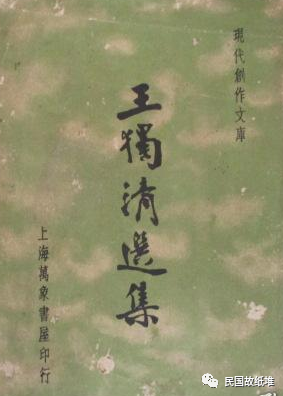 現代創作文庫
王獨清選集
上海萬象書屋印行
民国故纸堆